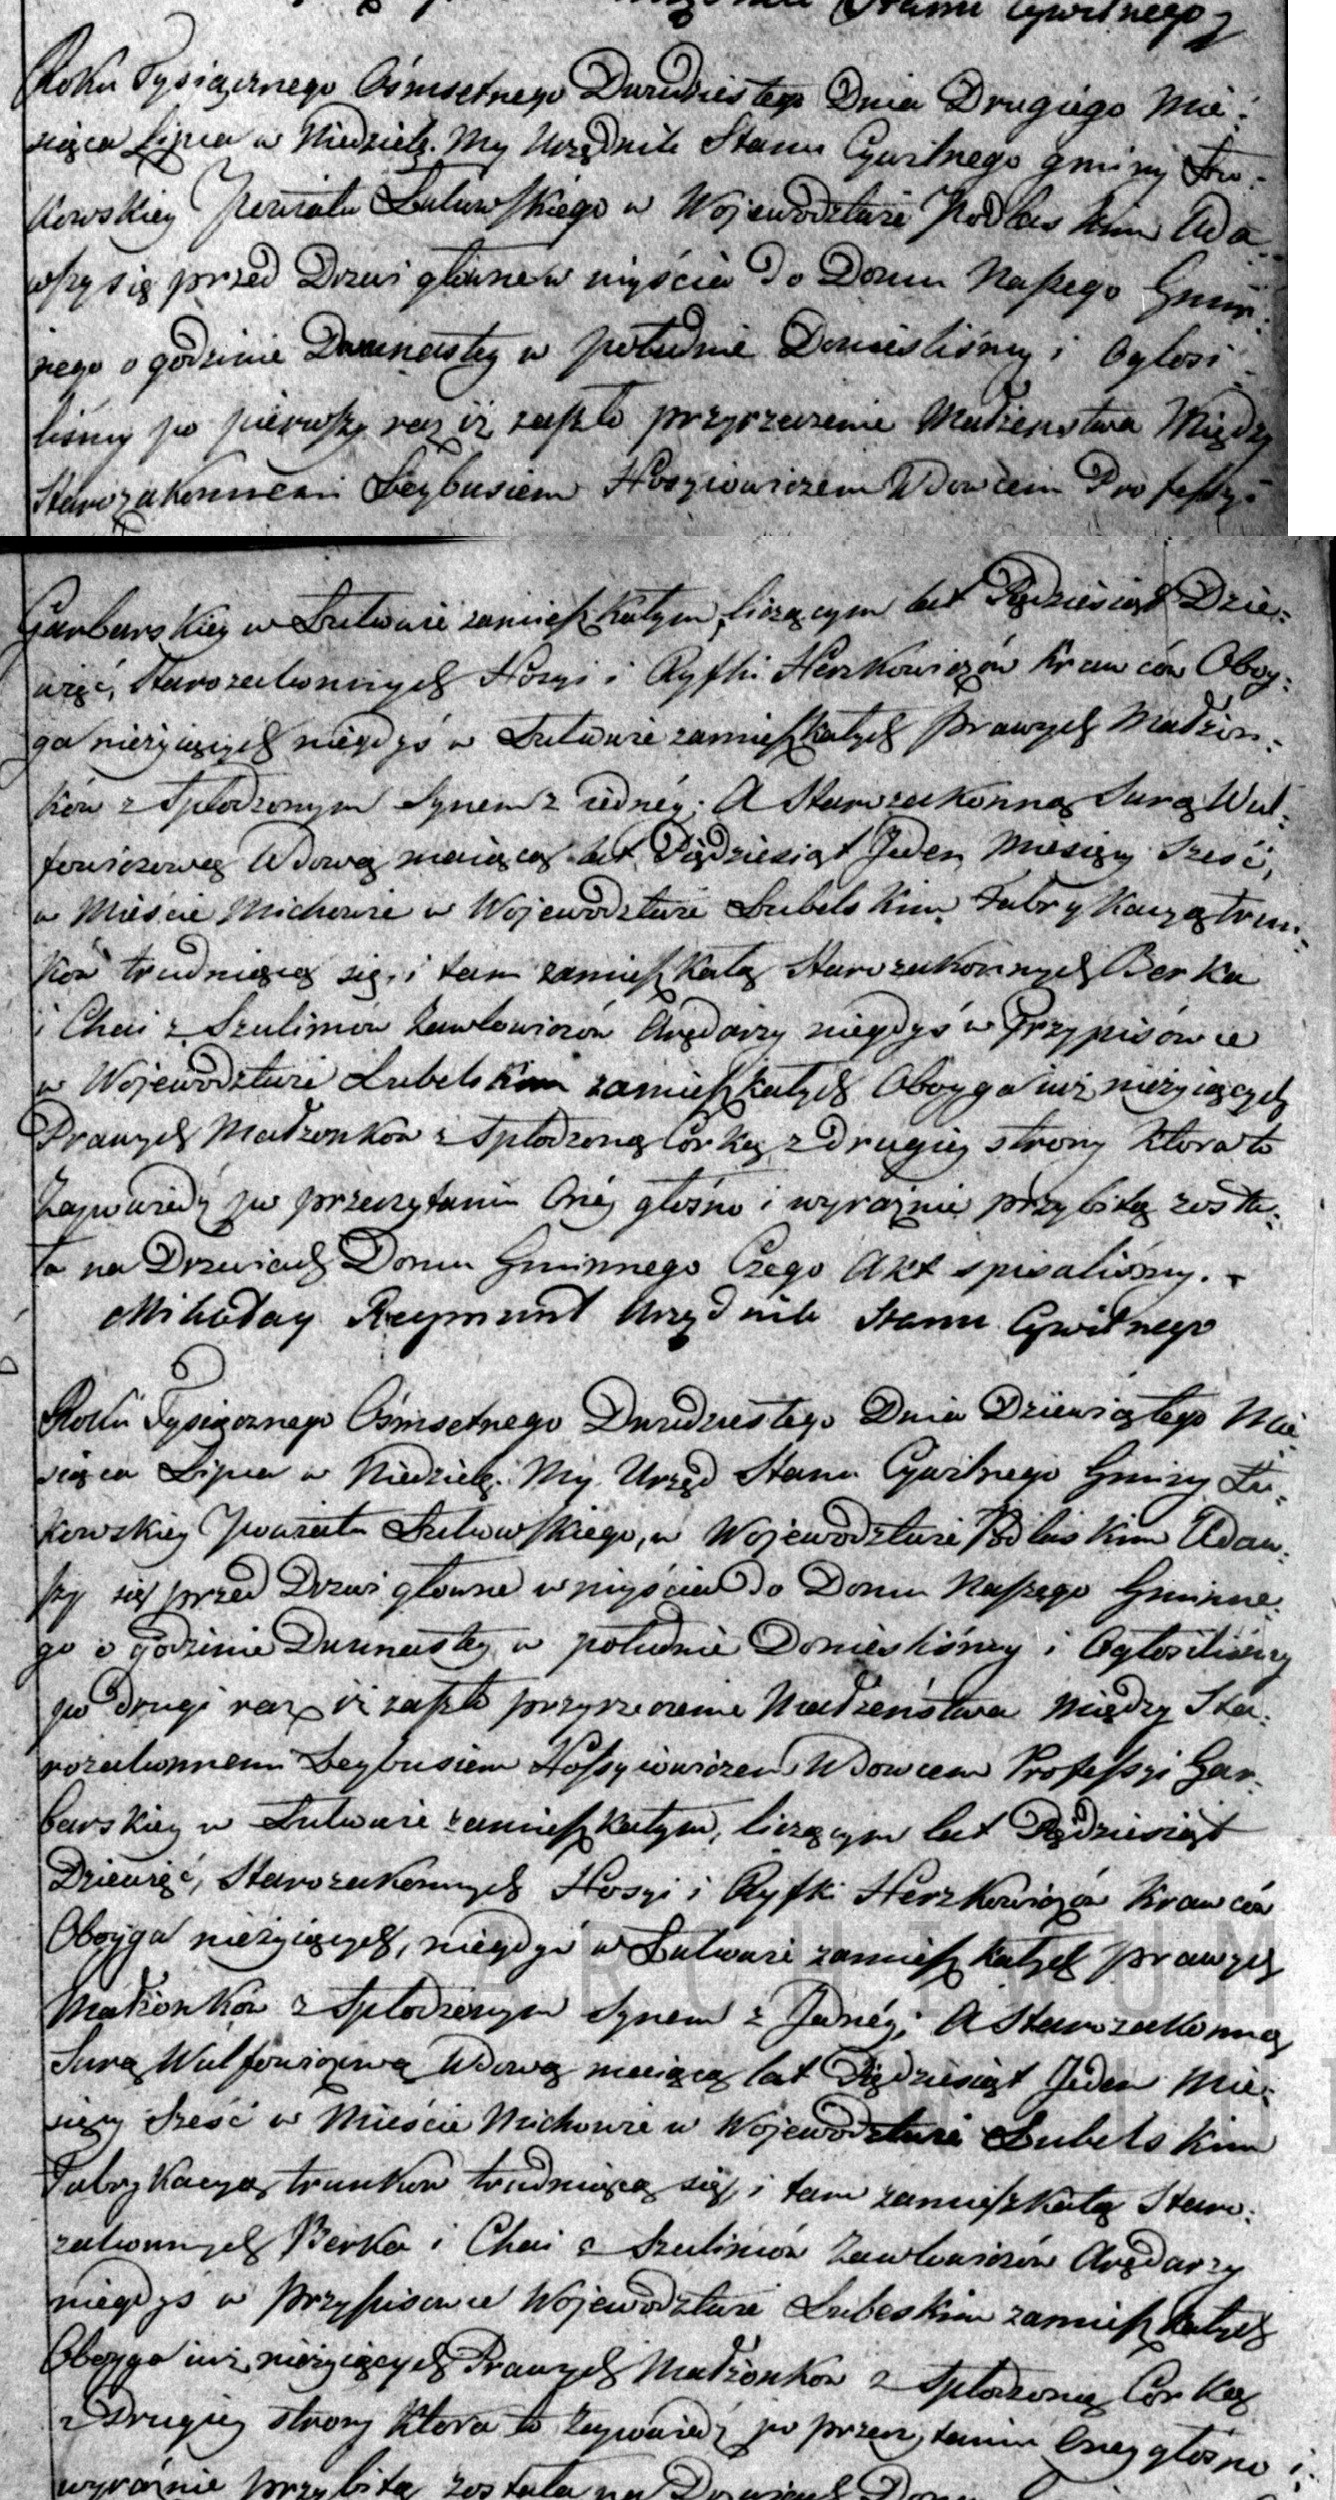 Stanu Cywilnego
Roku Tysiącznego Ośmsetnego Dwudziestego Dnia Drugiego Mie-
siąca Lipca w Niedzielę. My Urzędnik Stanu Cywilnego gminy Łu-
kowskiey Powiatu Łukowskiego w Woiewodztwie Podlaskim Uda
wszy się przed Drzwi główne w niyścia do Domu Naszego Gmin-
nego o godzinie Dwunastey w południe Doniesliśmy i Ogłosi
liśmy po pierwszy raz iż zaszło przyrzeczenie Małżeństwa Między
Starozakonnem Leybusiem Hosyiowiczem Wdowcem Professyi
Garbarskiey w Łukowie zamieszkałym, liczącym lat Pięćdziesiąt Dzie-
więć, Starozakonnych Hosyi i Ryfki Herszkowiczów Krawców Oboy-
ga nieżyiących niegdyś w Łukowie zamieszkałych prawych Małżon-
ków z Spłodzonym Synem z iedney; A Starozakonną Surą Wul-
fowiczową Wdową maiącą lat Pięćdziesiąt Jeden Miesięcy Sześć,
w Mieście Michowie w Woiewodztwie Lubelskim Fabrykacyą trun-
ków trudniącą się, i tam zamieszkałą Starozakonnych Berka
i Chai z Szulimów Zawłowiczów Arędarzy niegdyś w Przypisówce
w Woiewodztwie Lubelskim zamieszkałych Oboyga iuż nieżyiących
Prawych Małżonków z Spłodzoną Córką z Drugiey strony która to
Zapowiedź po przeczytaniu Oney głośno i wyraźnie przybitą zosta-
ła na Drzwiach Domu Gminnego Czego Akt spisaliśmy.
Mikołay Reymunt Urzędnik Stanu Cywilnego
Roku Tysiącznego Ośmsetnego Dwudziestego Dnia Dziewiątego Mie
siąca Lipca w Niedzielę. My Urzęd Stanu Cywilnego Gminy Łu-
kowskiey Powiatu Łukowskiego, w Woiewodztwie Podlaskim Udaw-
szy się przed Drzwi główne w niyścia do Domu Naszego Gminne-
go o godzinie Dwunastey w południe Doniesliśmy i Ogłosiliśmy
po drugi raz iż zaszło przyrzeczenie Małżeństwa między Sta-
rozakonnem Leybusiem Hossyiowiczem Wdowcem Professyi Gar-
barskiey w Łukowie zamieszkałym, liczącym lat Pięćdziesiąt
Dziewięć, Starozakonnych Hosyi i Ryfki Herszkowiczów Krawców
Oboyga nieżyiących, niegdyś w Łukowie zamieszkałych prawych
Małżonków z Spłodzonym Synem z Jedney; A Starozakonną
Surą Wulfowiczową Wdową maiącą lat Pięćdziesiąt Jeden Mie-
sięcy Sześć w Mieście Michowie w Woiewodztwie Lubelskim
Fabrykacyą trunków trudniącą się, i tam zamieszkałą Staro-
zakonnych Berka i Chai z Szulimów Zawłowiczów Arędarzy
niegdyś w Przypisowce Woiewodztwie Lubeskim zamieszkałych
Oboyga iuż nieżyiących Prawych Małżonków z Spłodzoną Córką
z Drugiey strony która to Zapowiedź po przeczytaniu Oney głośno i
wyraźnie przybitą została na Drzwiach Domu